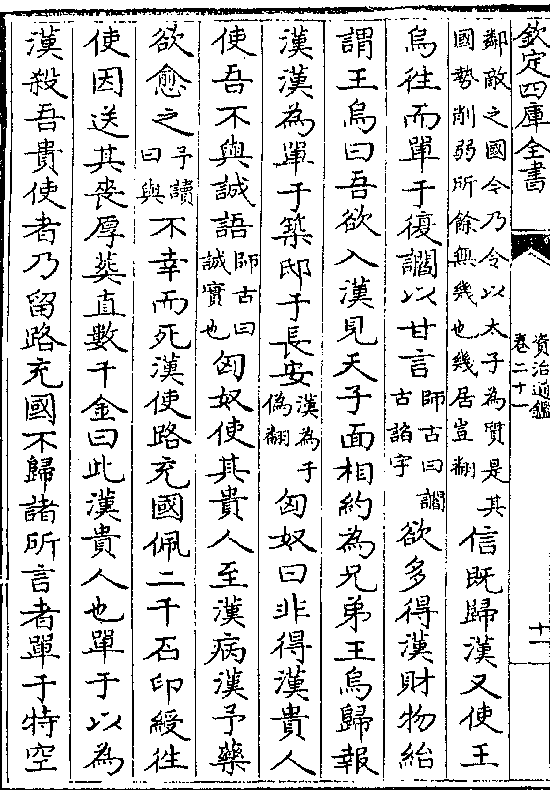 欽定四庫全書
資治通鑑
卷二十一
十一
鄰敵之國今乃令以太子為質是其
國勢削弱所餘無幾也幾居豈翻
信既歸漢又使王
烏往而單于復讇以甘言
師古曰讇
古諂字
欲多得漢財物紿
謂王烏曰吾欲入漢見天子面相約為兄弟王烏歸報
漢漢為單于築邸于長安
漢為于
偽翻
匈奴曰非得漢貴人
使吾不與誠語
師古曰
誠實也
匈奴使其貴人至漢病漢予藥
欲愈之
予讀
曰與
不幸而死漢使路充國佩二千石印綬往
使因送其喪厚葬直數千金曰此漢貴人也單于以為
漢殺吾貴使者乃留路充國不歸諸所言者單于特空